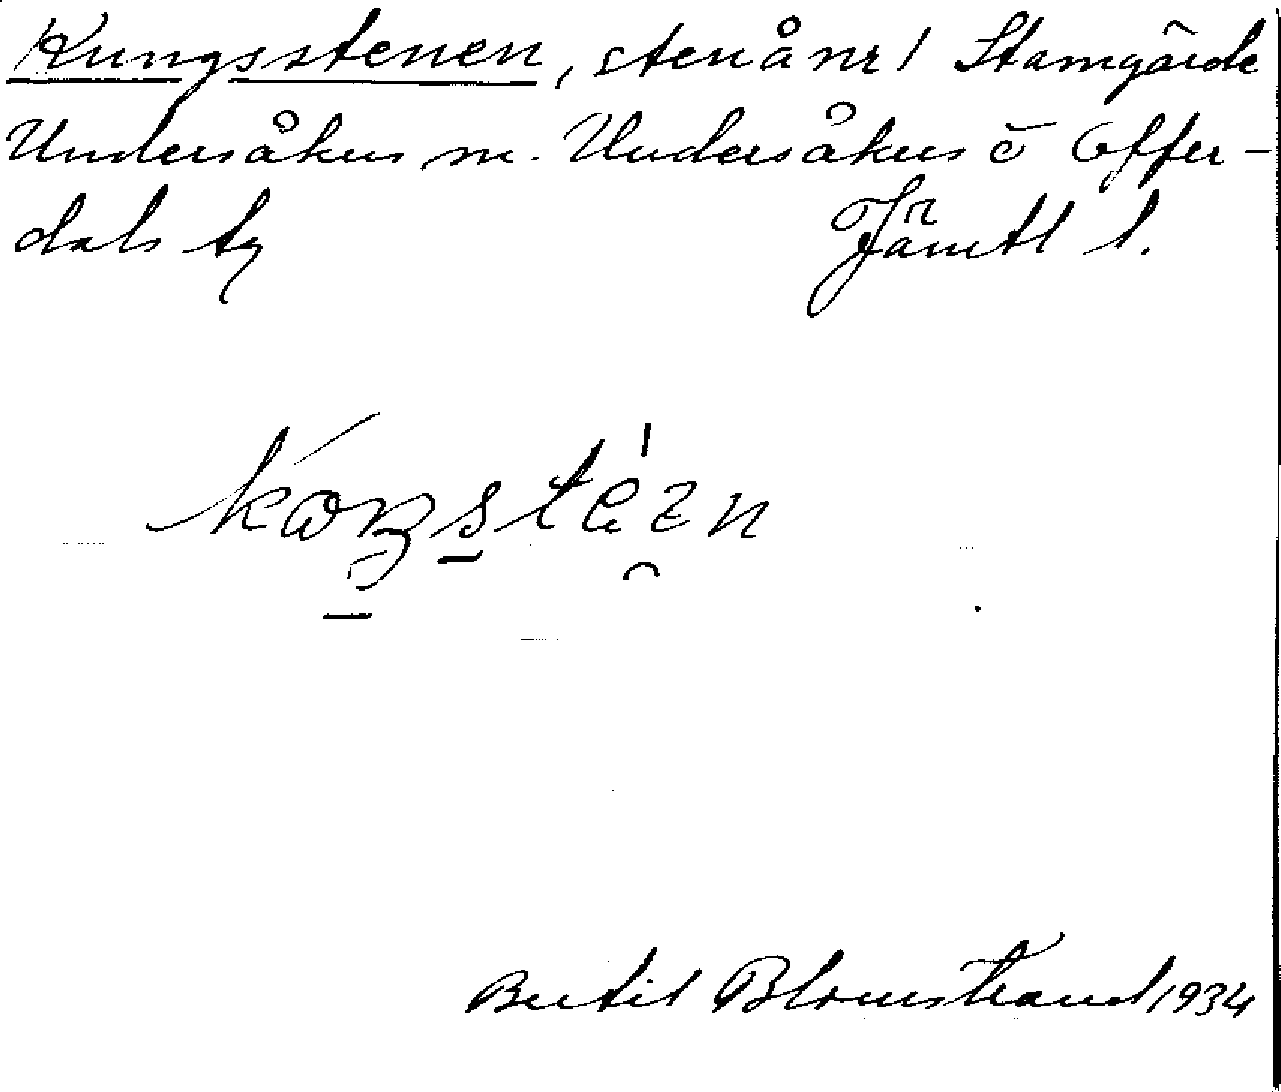 Kungsstenen, sten å nr 1 Stamgärde
Undersåkers sn. Undersåkers o Offer-
dals tg Jämtl l.
Bertil Blomstrand 1934